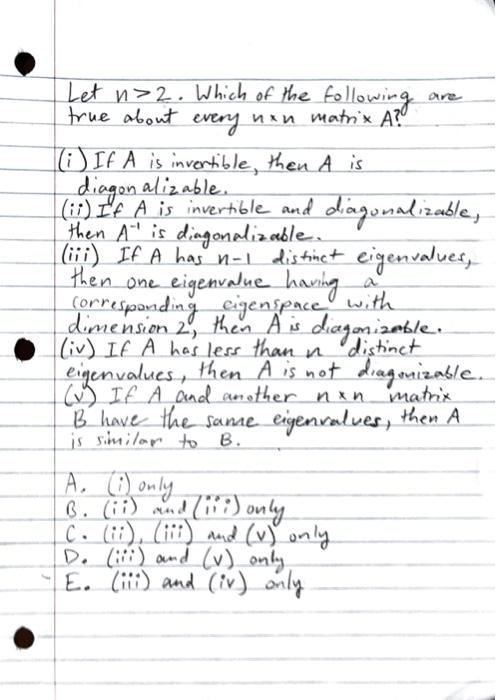 Let n>2. Which of the following are
true about every n×n matrix A?
(i) If A is invertible, then A is
diagonalizable.
(ii) If A is invertible and diagonalizable,
then A⁻¹ is diagonalizable.
(iii) If A has n-1 distinct eigenvalues,
then one eigenvalue having a
corresponding eigenspace with
dimension 2, then A is diagonizable.
(iv) If A has less than n distinct
eigenvalues, then A is not diagonizable.
(v) If A and another n×n matrix
B have the same eigenvalues, then A
is similar to B.
A. (i) only
B. (ii) and (iii) only
C. (ii), (iii) and (v) only
D. (iii) and (v) only
E. (iii) and (iv) only